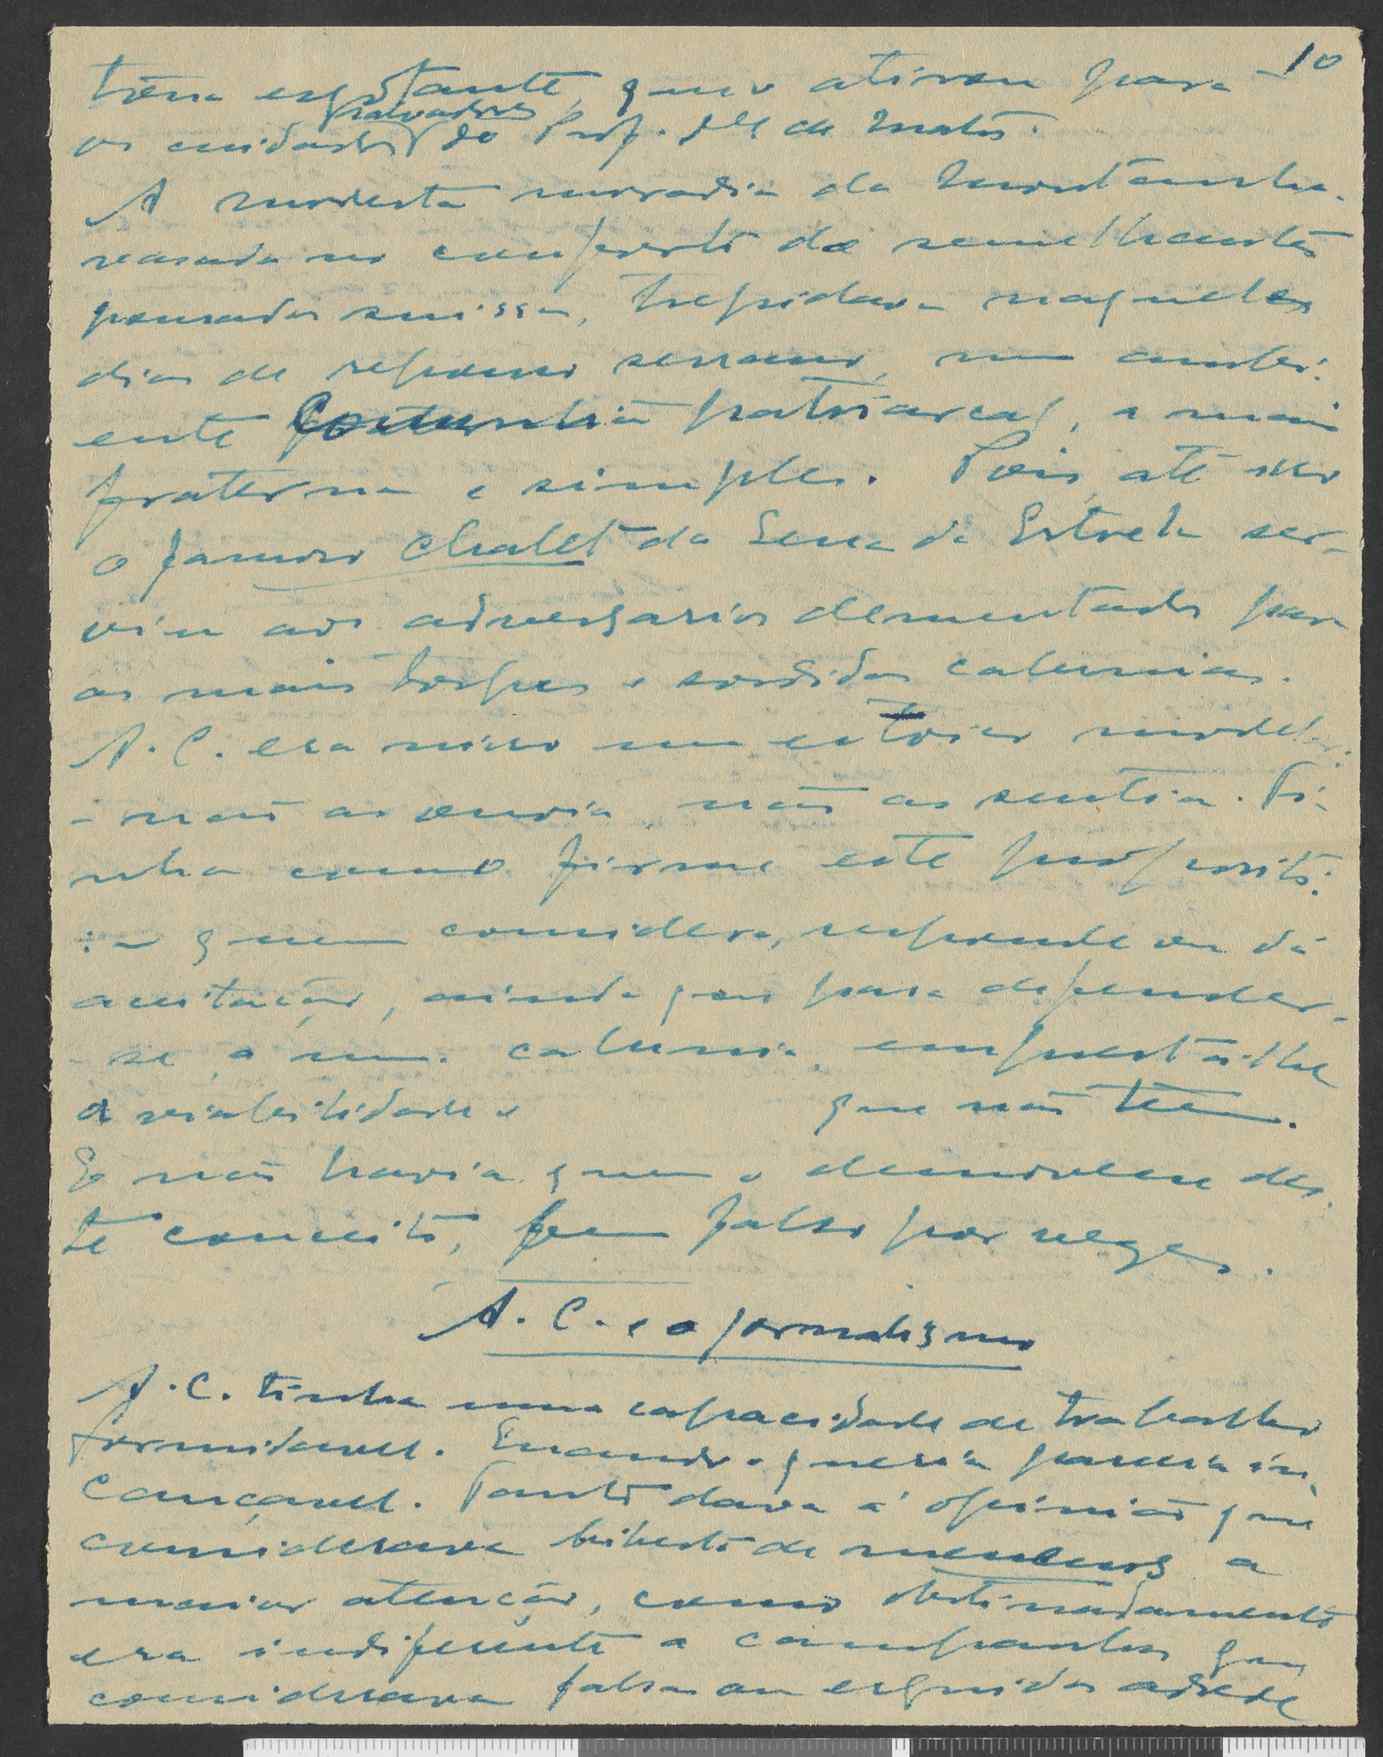 10
esgotante, que o atirou para
os cuidados salvadores do Prof. de Matos.
A modesta moradia da Montanha,
vasada no conforto de semelhantes
pousadas suissas, trepidava naqueles
dias de repouso serrano, num ambi-
ente patriarcal, a mais
fraterna e simples. Pois até
o famoso chalet da Serra da Estrela ser-
viu aos adversarios dementados para
as mais torpes e sordidas calunias.
A. C. era nisso um estoico modelar:
- não as ouvia, não as sentia. Ti-
nha como firme este proposito:
:- quem considera, responde ou dá
aceitação, ainda que para defender-
-se, a uma calunia, empresta-lhe
a viabilidade que não tem.
E não havia quem o demovesse des-
te conceito, bem falso por vezes.
A. C. e o jornalismo
A. C. tinha uma capacidade de trabalho
formidavel. Quando queria parecia in-
cançavel. Tanto dava á opinião que
considerava liberta de a
maior atenção, como obstinadamente
era indiferente a campanhas que
considerava falsas ou erguidas adrede